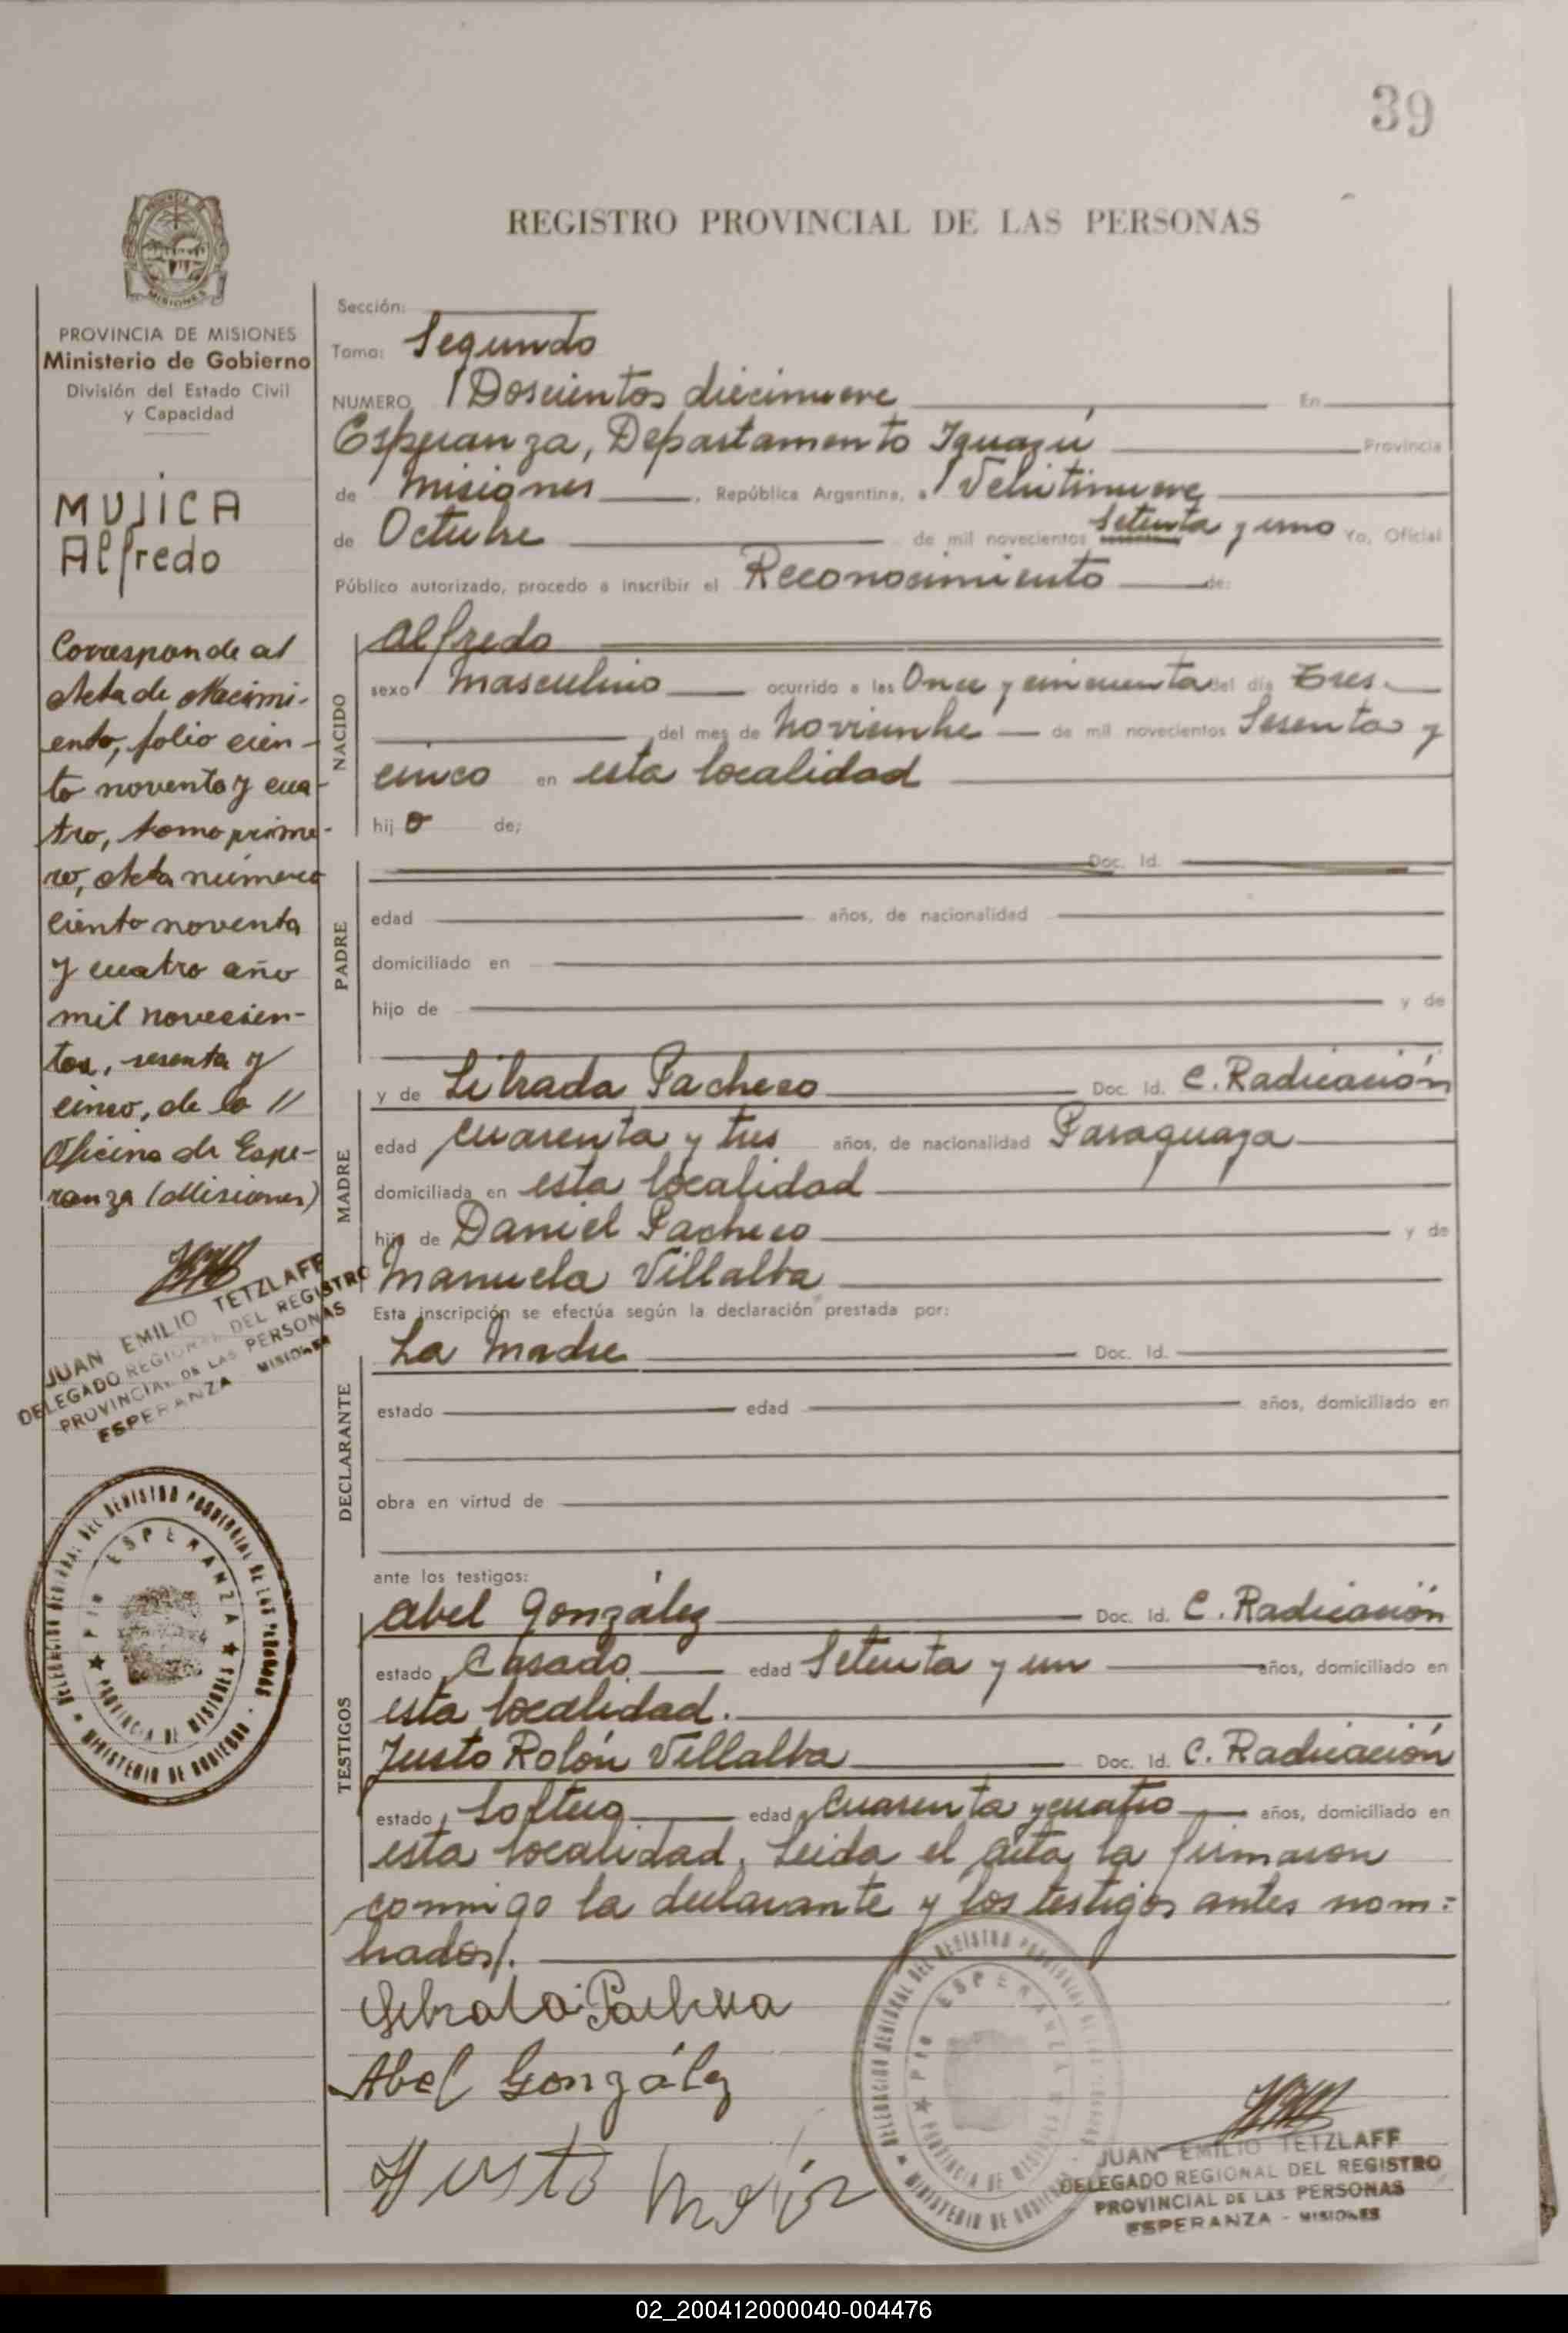 39
REGISTRO PROVINCIAL DE LAS PERSONAS
PROVINCIA DE MISIONES
Ministerio de Gobierno
División del Estado Civil
y Capacidad
MUJICA
Alfredo
Corresponde al
Acta de Nacimi-
ento, folio cien-
to noventa y cua-
tro, tomo prime-
ro, Acta número
ciento noventa
y cuatro año
mil novecien-
tos, sesenta y
cinco, de la //
Oficina de Espe-
ranza (Misiones)
JUAN EMILIO TETZLAFF
DELEGADO REGIONAL DEL REGISTRO
PROVINCIAL DE LAS PERSONAS
ESPERANZA - MISIONES
DELEGACION REGIONAL DEL REGISTRO PROVINCIAL DE LAS PERSONAS
MINISTERIO DE GOBIERNO
PTO ESPERANZA
PROVINCIA DE MISIONES
Sección:
Tomo: Segundo
NUMERO Doscientos diecinueve En
Esperanza, Departamento Iguazú Provincia
de Misiones, República Argentina, a Veintinueve
de Octubre de mil novecientos Setenta y uno Yo, Oficial
Público autorizado, procedo a inscribir el Reconocimiento de:
NACIDO
Alfredo
sexo Masculino ocurrido a las Once y cincuenta del día Tres.
del mes de Noviembre de mil novecientos Sesenta y
cinco en esta localidad
hijo de;
PADRE
Doc. Id.
edad años, de nacionalidad
domiciliado en
hijo de y de
MADRE
y de Librada Pacheco Doc. Id. C. Radicación
edad cuarenta y tres años, de nacionalidad Paraguaya
domiciliada en esta localidad
hija de Daniel Pacheco y de
Manuela Villalba
Esta inscripción se efectúa según la declaración prestada por:
DECLARANTE
La Madre Doc. Id.
estado edad años, domiciliado en
obra en virtud de
ante los testigos:
TESTIGOS
Abel González Doc. Id. C. Radicación
estado Casado edad Setenta y un años, domiciliado en
esta localidad.
Justo Rolón Villalba Doc. Id. C. Radicación
estado Soltero edad Cuarenta y cuatro años, domiciliado en
esta localidad, Leida el acta, la firmaron
conmigo la declarante y los testigos antes nom=
brados/.
Abel González
Justo
DELEGACION REGIONAL DEL REGISTRO PROVINCIAL DE LAS PERSONAS
MINISTERIO DE GOBIERNO
PTO ESPERANZA
PROVINCIA DE MISIONES
JUAN EMILIO TETZLAFF
DELEGADO REGIONAL DEL REGISTRO
PROVINCIAL DE LAS PERSONAS
ESPERANZA - MISIONES
02_200412000040-004476